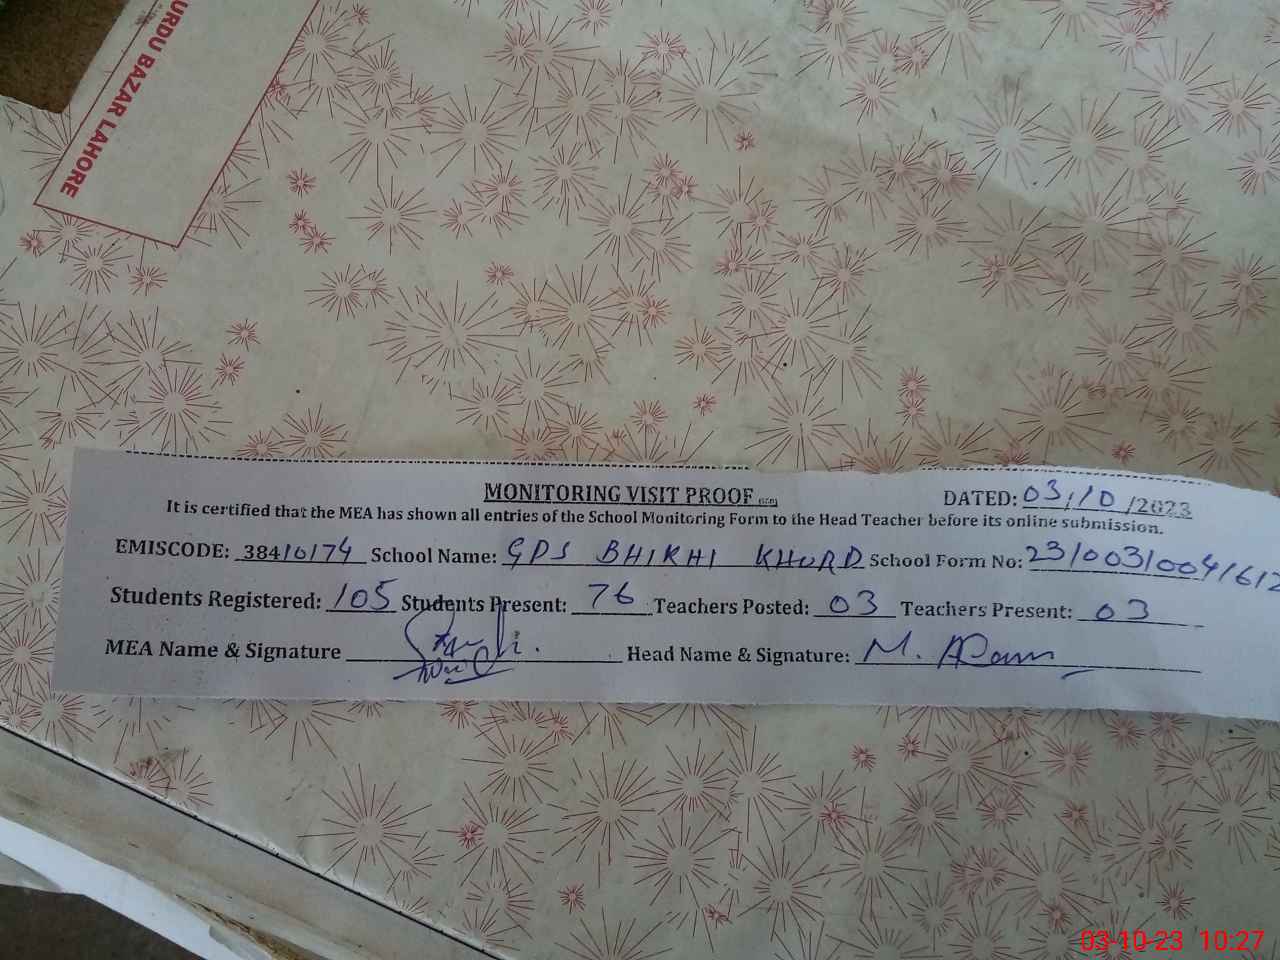 URDU BAZAR LAHORE
MONITORING VISIT PROOF
DATED: 03/10/2023
It is certified that the MEA has shown all entries of the School Monitoring Form to the Head Teacher before its online submission.
EMISCODE: 38410174 School Name: GPS BHIKHI KHURD School Form No: 23100310041612
Students Registered: 105 Students Present: 76 Teachers Posted: 03 Teachers Present: 03
MEA Name & Signature Head Name & Signature: M.
03-10-23 10:27